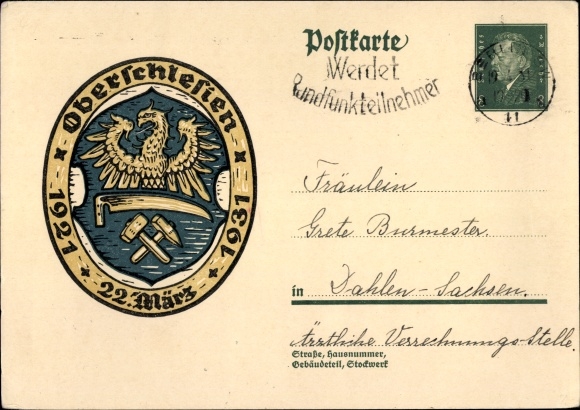 Oberschlesien
1921
1931
22. März
Postkarte
Werdet
Rundfunkteilnehmer
BERLIN
11
Fräulein
Grete Burmester.
in Dahlen-Sachsen.
Ärztliche Verrechnungs-Stelle.
Straße, Hausnummer,
Gebäudeteil, Stockwerk